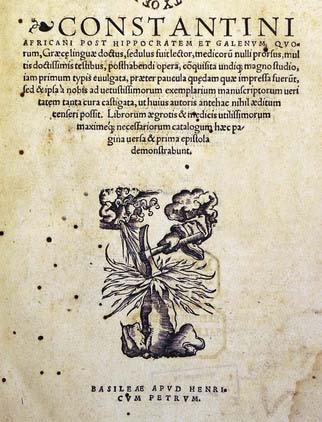 CONSTANTINI
AFRICANI POST HIPPOCRATEM ET GALENVM, QVO-
rum, Græcę linguæ doctus, sedulus fuit lector, medicorū nulli prorsus, mul
tis doctissimis testibus, posthabendi opera, cōquisita undiq; magno studio,
iam primum typis euulgata, præter paucula quędam quæ impressa fuerūt,
sed & ipsa à nobis ad uetustissimorum exemplarium manuscriptorum veri
tatem tanta cura castigata, ut huius autoris antehac nihil æditum
censeri possit. Librorum ægrotis & medicis utilissimorum
maximeq; necessariorum catalogum hæc pa-
gina versa & prima epistola
demonstrabunt.
BASILEAE APVD HENRI-
CVM PETRVM.